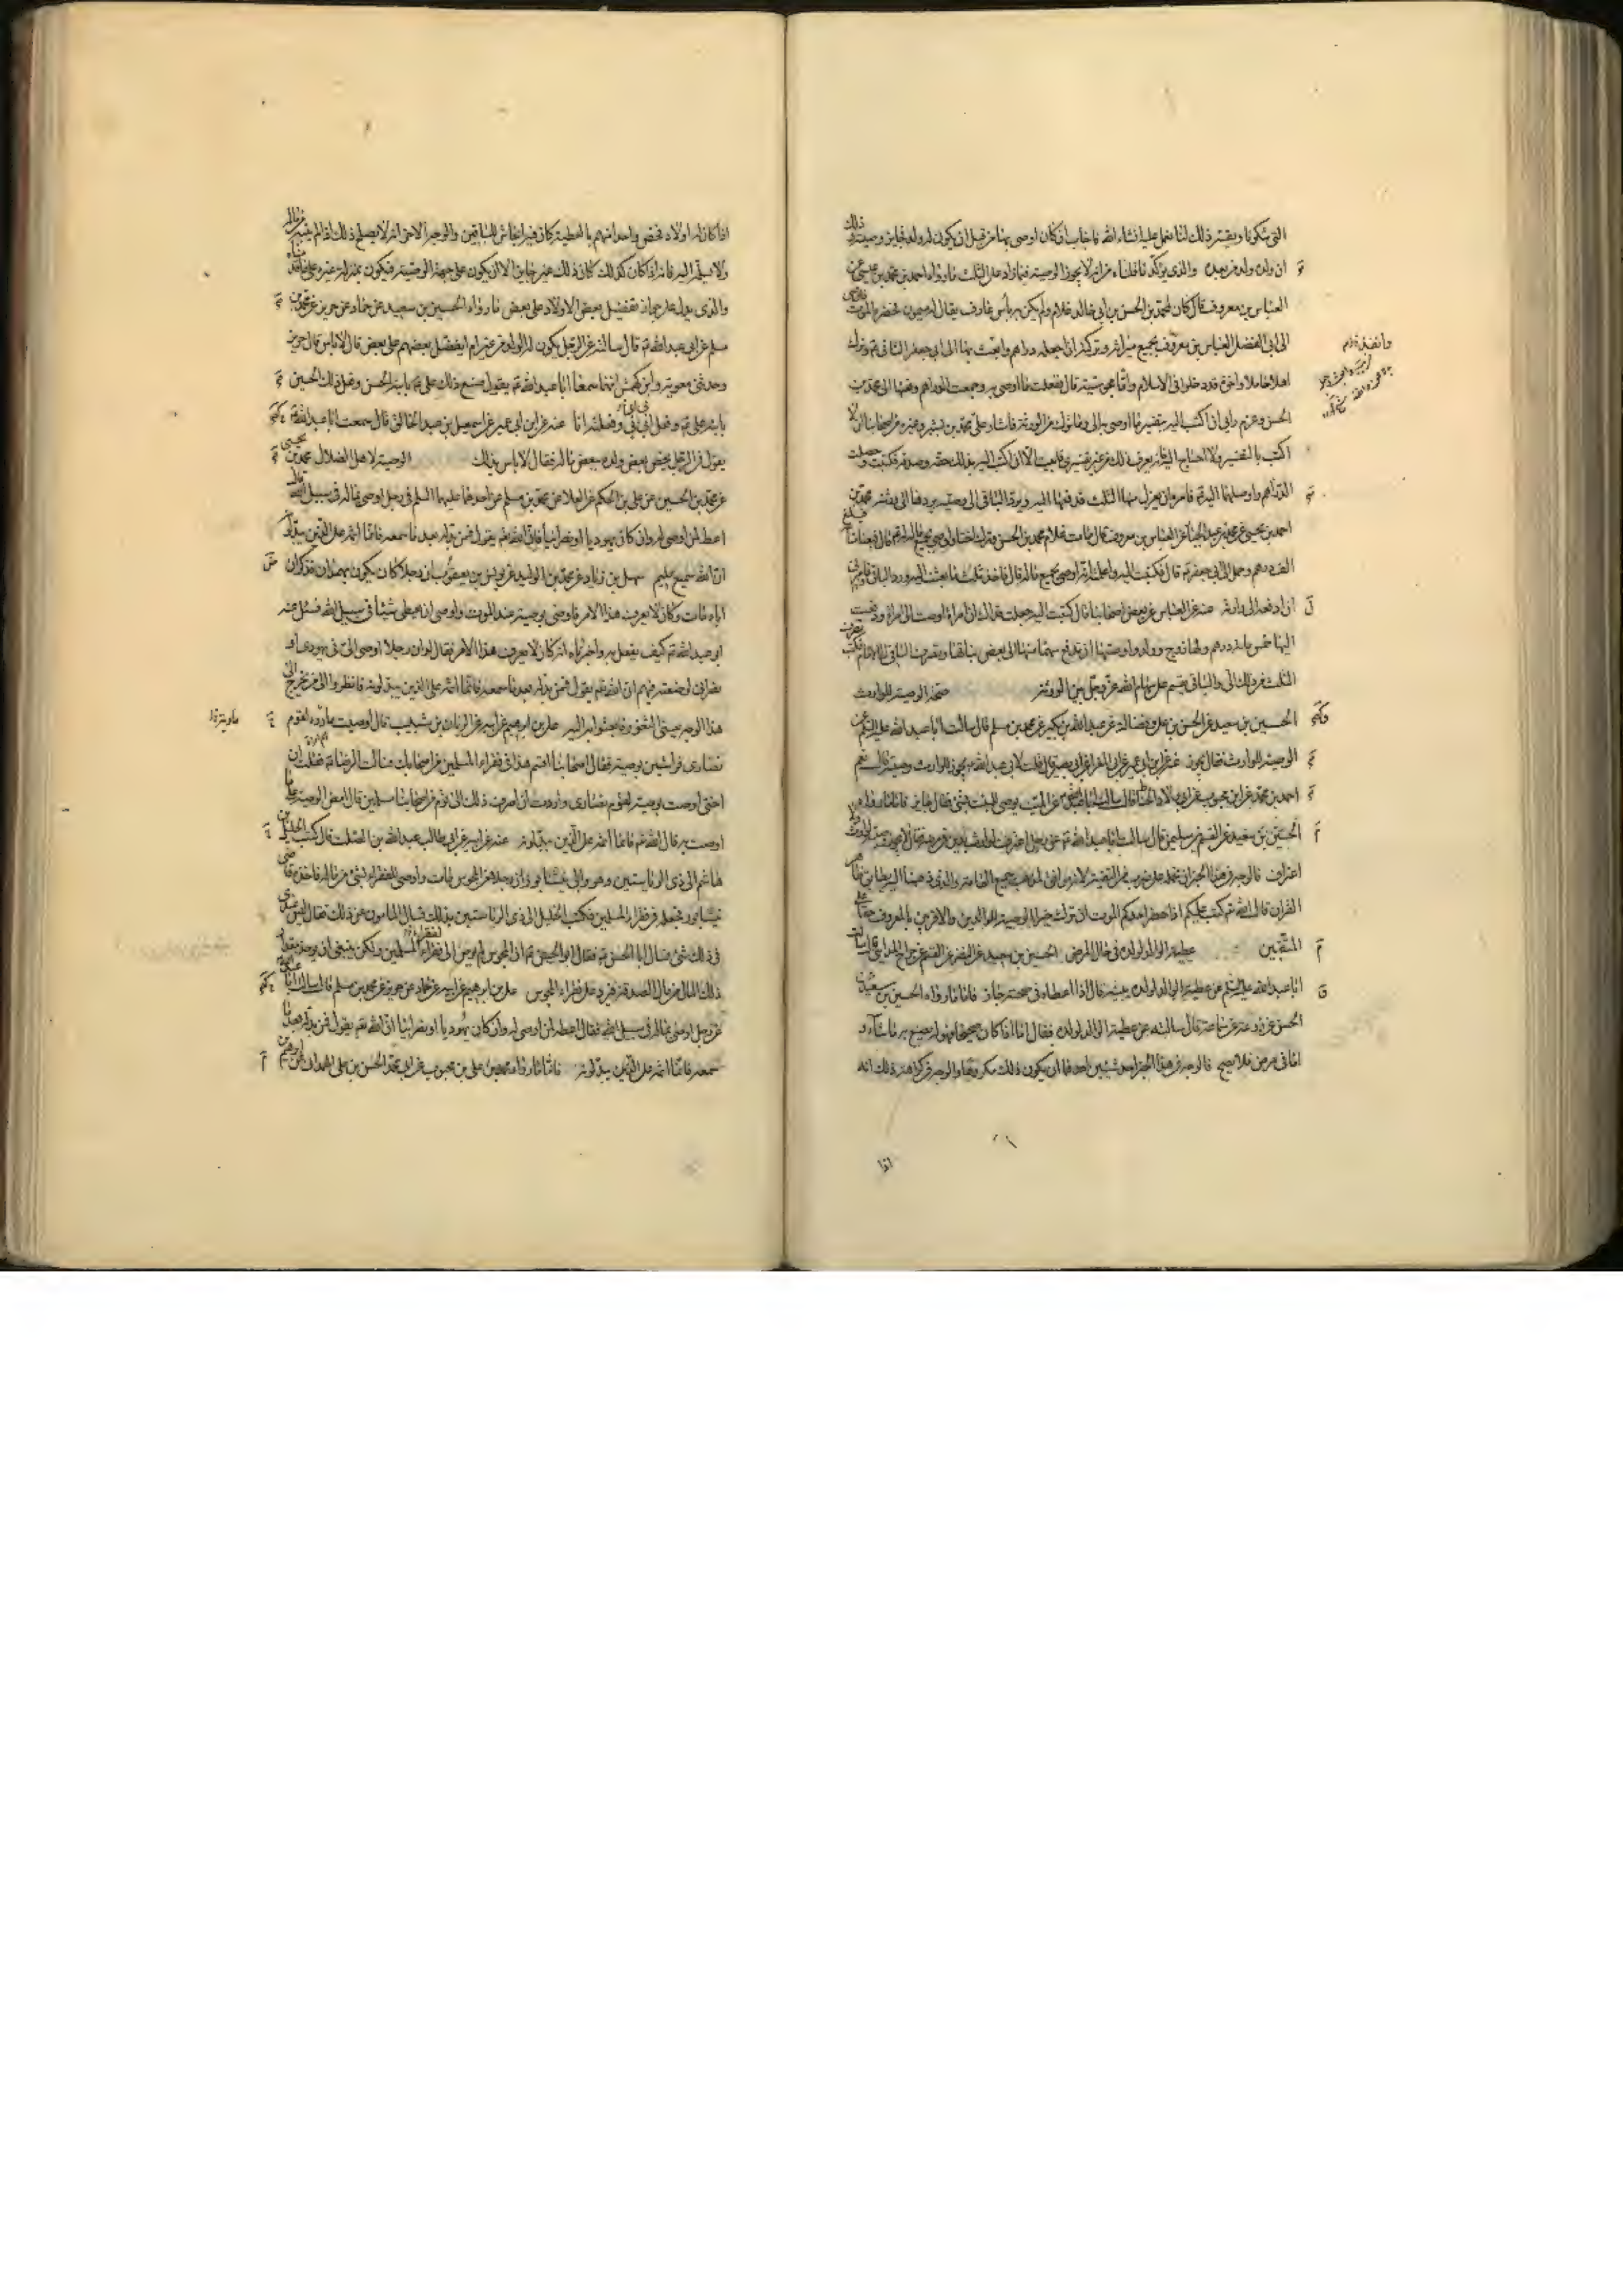 التي شكوناه ويفسر ذلك لنا نعمل عليه انشاء الله فاجاب ان كان اوصى بها من قبل ان يكون له ولد فجايز وصيته وذلك
ان ولده ولد من بعده والذي يؤكد ما قلناه من انه لا يجوز الوصية فيما زاد على الثلث ما رواه احمد بن محمد بن عيسى عن
العباس بن معروف قال كان لمحمد بن الحسن بن ابي خالد غلام ولم يكن به بأس عارف يقال له ميمون فحضره الموت فاوصى
الى ابي الفضل العباس بن معروف بجميع ميراثه وتركته ان اجعله دراهم وابعث بها الى ابي جعفر الثاني ع وترك
اهلا حاملا واخوة قد دخلوا في الاسلام واما مجوسية قال ففعلت ما اوصى به وجمعت الدراهم ودفعتها الى محمد بن
الحسن وعزم رايي ان اكتب اليه بتفسير ما اوصى به الي وما ترك من الورثة فاشار علي محمد بن بشير وغيره من اصحابنا ان لا
اكتب بالتفسير ولا احتاج اليه فانه يعرف ذلك من غير تفسيري فابيت الا ان اكتب اليه بذلك على حقه وصدقه فكتبت وحصلت
الدراهم واوصلتها اليه ع فامره ان يعزل منها الثلث فدفعها اليه ويرد الباقي الى وصيه يردها الى ورثته محمد بن
احمد بن يحيى عن محمد بن عبد الجبار عن العباس بن معروف قال مات غلام محمد بن الحسن وترك اختا واوصى بجميع ماله له ع قال فبعنا متاعه فبلغ
الف درهم وحمل الى ابي جعفر ع قال وكتبت اليه واعلمته انه اوصى بجميع ماله قال فاخذ ثلث ما بعثت اليه ورد الباقي وامرني
ان ادفعه الى وارثه عنه عن العباس عن بعض اصحابنا قال كتبت اليه جعلت فداك ان امرأة اوصت الى امرأة ودفعت
اليها خمس مائة درهم ولها زوج وولد واوصتها ان تدفع سهما منها الى بعض بناتها وتصرف الباقي الى الامام فكتب تصرف
الثلث من ذلك الي والباقي يقسم على سهام الله عز وجل بين الورثة صحة الوصية للوارث
الحسين بن سعيد عن الحسن بن علي وفضالة عن عبد الله بن بكير عن محمد بن مسلم قال سألت ابا عبد الله عليه السلم عن
الوصية للوارث فقال يجوز عنه عن ابن ابي عمير عن ابي المغرا عن ابي بصير قال قلت لابي عبد الله ع يجوز للوارث وصية قال نعم
احمد بن محمد عن ابن محبوب عن ابي ولاد الحناط قال سالت ابا عبد الله ع عن الميت يوصي للبنت بشئ فقال جايز فاما ما رواه
الحسين بن سعيد عن القسم بن سليمن قال سالت ابا عبد الله ع عن رجل اعترف لوارث بدين في مرضه فقال لا يجوز وصيته لوارث ولا
اعتراف فالوجه في هذا الخبر ان نحمله على ضرب من التقية لانه موافق لمذاهب جميع العامة والذي ذهبنا اليه مطابق لظاهر
القران قال الله تع كتب عليكم اذا حضر احدكم الموت ان ترك خيرا الوصية للوالدين والاقربين بالمعروف حقا على
المتقين عطية الوالد لولده في حال المرض الحسين بن سعيد عن النضر عن القسم عن جراح المدايني قال سالت
ابا عبد الله عليه السلم عن عطية الوالد لولده يبينه قال اذا اعطاه في صحته جاز فاما ما رواه الحسين بن سعيد عن
الحسن عن زرعة عن سماعة قال سالته عن عطية الوالد لولده فقال اما اذا كان صحيحا فهو له يصنع به ما شاء و
اما في مرض فلا يصلح فالوجه في هذا الخبر احد شيئين احدهما ان يكون ذلك مكروها والوجه في كراهية ذلك انه
اذا
اذا كان له اولاد فخص واحدا منهم بالعطية كان فيه ايحاش للباقين والوجه الاخر انه لا يصلح ذلك اذا لم يبنه من ماله
ولا يسلم اليه فانه اذا كان كذلك كان ذلك غير جايز الا ان يكون على جهة الوصية فيكون بمنزلة غيره على ما قدمناه
والذي يدل على جواز تفضيل بعض الاولاد على بعض ما رواه الحسين بن سعيد عن حماد عن حريز عن محمد بن
مسلم عن ابي عبد الله ع قال سالته عن الرجل يكون له الولد من غير ام ايفضل بعضهم على بعض قال لا باس قال حريز
وحدثني معوية وابو كهمس انهما سمعا ابا عبد الله ع يقول صنع ذلك علي ع بابنه الحسن وفعل ذلك الحسين
بابنه علي ع وفعل ابي بي وفعلته انا عنه عن ابن ابي عمير عن اسمعيل بن عبد الخالق قال سمعت ابا عبد الله ع
يقول في الرجل يخص بعض ولده ببعض ماله فقال لا باس بذلك الوصية لاهل الضلال محمد بن يحيى
عن محمد بن الحسين عن علي بن الحكم عن العلا عن محمد بن مسلم عن احدهما عليهما السلم في رجل اوصى بماله في سبيل الله قال
اعط لمن اوصى له وان كان يهوديا او نصرانيا فان الله تع يقول فمن بدله بعد ما سمعه فانما اثمه على الذين يبدلونه
ان الله سميع عليم سهل بن زياد عن محمد بن الوليد عن يونس بن يعقوب ان رجلا كان يكون بهمدان ذكر ان
اباه مات وكان لا يعرف هذا الامر فاوصى بوصية عند الموت واوصى ان يعطى شيئا في سبيل الله فسئل عنه
ابو عبد الله ع كيف يفعل به واخبرناه انه كان لا يعرف هذا الامر فقال لو ان رجلا اوصى الي ان في يهودي او
نصراني لوضعته فيهم ان الله تع يقول فمن بدله بعد ما سمعه فانما اثمه على الذين يبدلونه فانظروا الى من يخرج الى
هذا الوجه يعني الثغور فابعثوا به اليه علي بن ابرهيم عن ابيه عن الريان بن شبيب قال اوصت ماردة لقوم
نصارى فراشين بوصية فقال اصحابنا اقسم هذا في فقراء المسلمين من اصحابك فسالت الرضا ع فقلت ان
اختي اوصت بوصية لقوم نصارى واردت ان اصرف ذلك الى قوم من اصحابنا مسلمين قال امض الوصية على ما
اوصت به قال الله تع فانما اثمه على الذين يبدلونه عنه عن ابيه عن ابي طالب عبد الله بن الصلت قال كتب الخليل بن
هاشم الى ذي الرياستين وهو والي نيشابور ان رجلا من المجوس مات واوصى للفقراء بشئ من ماله فاخذه قاضي
نيشابور فجعله في فقراء المسلمين فكتب الخليل الى ذي الرياستين بذلك فسال المامون عن ذلك فقال ليس عندي
في ذلك شئ فسال ابا الحسن ع فقال ابو الحسن ع ان المجوسي لم يوص الى فقراء المسلمين ولكن ينبغي ان يوخذ مقدار
ذلك المال من مال الصدقة فيرد على فقراء المجوس علي بن ابرهيم عن ابيه عن حماد عن حريز عن محمد بن مسلم قال سالت ابا عبد الله ع
عن رجل اوصى بماله في سبيل الله فقال اعطه لمن اوصى له وان كان يهوديا او نصرانيا ان الله تع يقول فمن بدله بعد ما
سمعه فانما اثمه على الذين يبدلونه فاما ما رواه محمد بن علي بن محبوب عن ابي محمد الحسن بن علي الهمداني عن ابرهيم بن